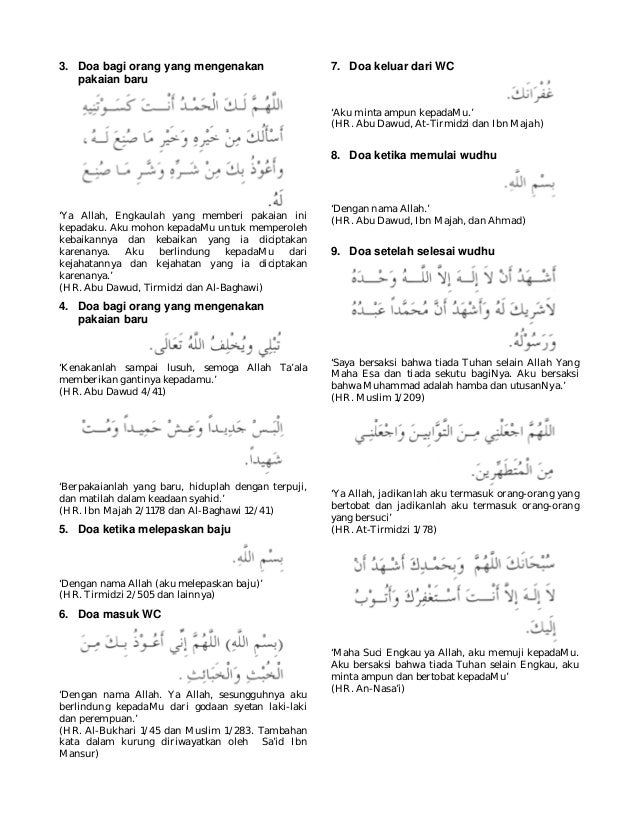 3. Doa bagi orang yang mengenakan
pakaian baru
اللَّهُمَّ لَكَ الْحَمْدُ أَنْتَ كَسَوْتَنِيهِ
أَسْأَلُكَ مِنْ خَيْرِهِ وَخَيْرِ مَا صُنِعَ لَهُ،
وأَعُوْذُ بِكَ مِنْ شَرِّهِ وَشَرِّ مَا صُنِعَ
لَهُ.
‘Ya Allah, Engkaulah yang memberi pakaian ini
kepadaku. Aku mohon kepadaMu untuk memperoleh
kebaikannya dan kebaikan yang ia diciptakan
karenanya. Aku berlindung kepadaMu dari
kejahatannya dan kejahatan yang ia diciptakan
karenanya.’
(HR. Abu Dawud, Tirmidzi dan Al-Baghawi)
4. Doa bagi orang yang mengenakan
pakaian baru
تُبْلِي وَيُخْلِفُ اللَّهُ تَعَالَى.
‘Kenakanlah sampai lusuh, semoga Allah Ta’ala
memberikan gantinya kepadamu.’
(HR. Abu Dawud 4/41)
اِلْبَسْ جَدِيداً وَعِشْ حَمِيداً وَمُتْ
شَهِيداً.
‘Berpakaianlah yang baru, hiduplah dengan terpuji,
dan matilah dalam keadaan syahid.’
(HR. Ibn Majah 2/1178 dan Al-Baghawi 12/41)
5. Doa ketika melepaskan baju
بِسْمِ اللَّهِ.
‘Dengan nama Allah (aku melepaskan baju)’
(HR. Tirmidzi 2/505 dan lainnya)
6. Doa masuk WC
(بِسْمِ اللَّهِ) اللَّهُمَّ إِنِّي أَعُوْذُ بِكَ مِنَ
الْخُبْثِ وَالْخَبَائِثِ.
‘Dengan nama Allah. Ya Allah, sesungguhnya aku
berlindung kepadaMu dari godaan syetan laki-laki
dan perempuan.’
(HR. Al-Bukhari 1/45 dan Muslim 1/283. Tambahan
kata dalam kurung diriwayatkan oleh Sa’id Ibn
Mansur)
7. Doa keluar dari WC
غُفْرَانَكَ.
‘Aku minta ampun kepadaMu.’
(HR. Abu Dawud, At-Tirmidzi dan Ibn Majah)
8. Doa ketika memulai wudhu
بِسْمِ اللَّهِ.
‘Dengan nama Allah.’
(HR. Abu Dawud, Ibn Majah, dan Ahmad)
9. Doa setelah selesai wudhu
أَشْهَدُ أَنْ لاَ إِلَهَ إِلاَّ اللَّهُ وَحْدَهُ
لاَشَرِيكَ لَهُ وَأَشْهَدُ أَنَّ مُحَمَّداً عَبْدُهُ
وَرَسُوْلُهُ.
‘Saya bersaksi bahwa tiada Tuhan selain Allah Yang
Maha Esa dan tiada sekutu bagiNya. Aku bersaksi
bahwa Muhammad adalah hamba dan utusanNya.’
(HR. Muslim 1/209)
اللَّهُمَّ اجْعَلْنِي مِنَ التَّوَّابِينَ وَاجْعَلْنِي
مِنَ الْمُتَطَهِّرِينَ.
‘Ya Allah, jadikanlah aku termasuk orang-orang yang
bertobat dan jadikanlah aku termasuk orang-orang
yang bersuci’
(HR. At-Tirmidzi 1/78)
سُبْحَانَكَ اللَّهُمَّ وَبِحَمْدِكَ أَشْهَدُ أَنْ
لاَ إِلَهَ إِلاَّ أَنْتَ أَسْتَغْفِرُكَ وَأَتُوْبُ
إِلَيْكَ.
‘Maha Suci Engkau ya Allah, aku memuji kepadaMu.
Aku bersaksi bahwa tiada Tuhan selain Engkau, aku
minta ampun dan bertobat kepadaMu’
(HR. An-Nasa’i)